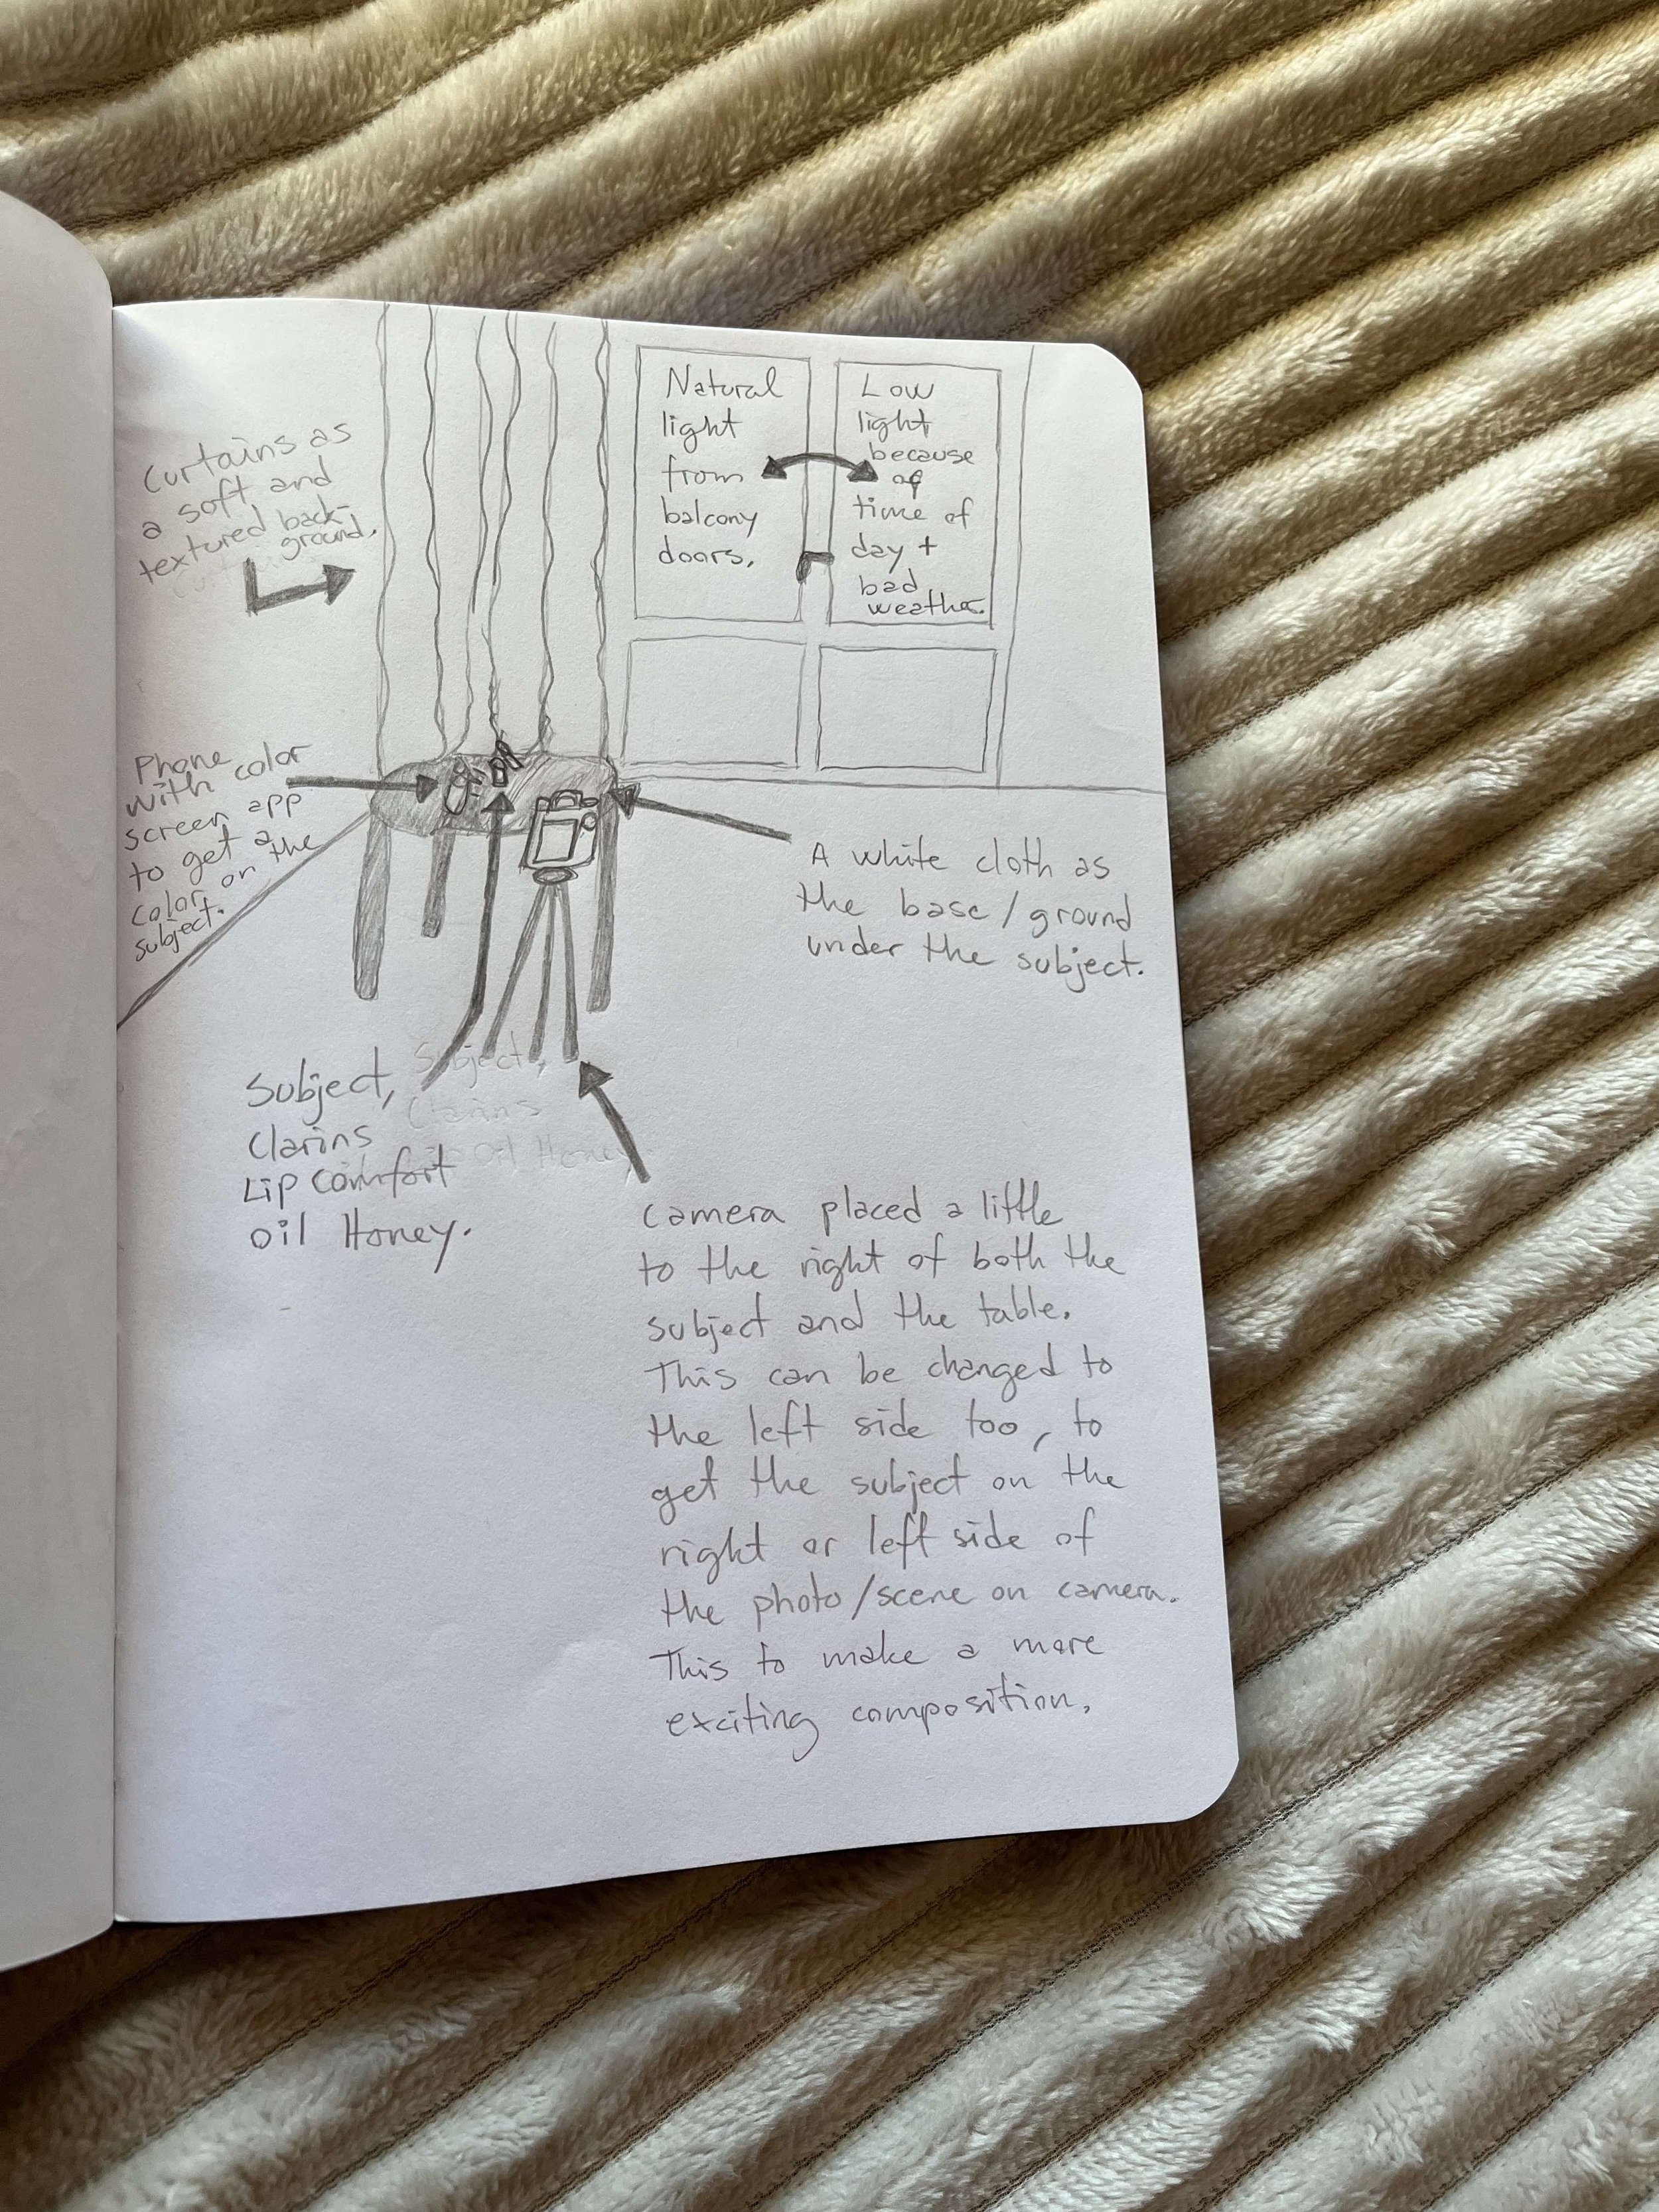 Curtains as
a soft and
textured back-
ground.
Natural
light
from
balcony
doors.
Low
light
because
of
time of
day +
bad
weather.
Phone
with color
screen app
to get a
color on the
subject.
A white cloth as
the base/ground
under the subject.
Subject,
Clarins
Lip Comfort
Oil Honey.
Subject,
Clarins
Oil Honey.
Camera placed a little
to the right of both the
subject and the table.
This can be changed to
the left side too, to
get the subject on the
right or left side of
the photo/scene on camera.
This to make a more
exciting composition.